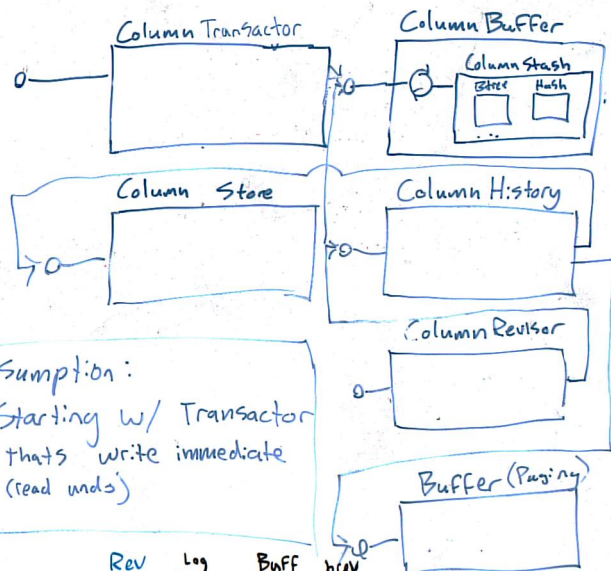 Column Transactor
Column Buffer
Column Stash
Btree Hash
...
Column Store
Column History
Column Revisor
Sumption:
Starting w/ Transactor
thats write immediate
(read
Buffer (Paging)
Rev Log Buff